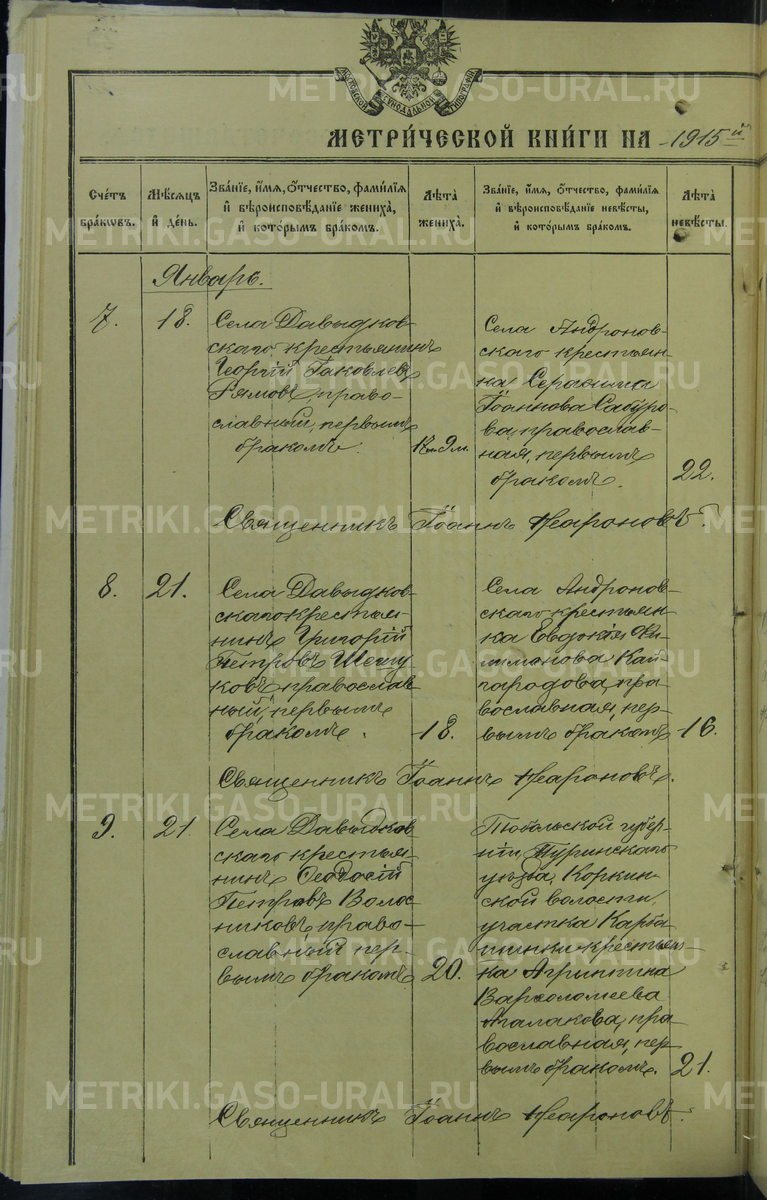 МОСКОВСКОЙ СѴНОДАЛЬНОЙ ТИПОГРАФІИ
МЕТРИ́ЧЕСКОЙ КНИ́ГИ НА 1915й
Сче́тъ бра́кωвъ.
Мѣ́сѧцъ и҆ де́нь.
Зва́нїе, и҆́мѧ, ѻ҆́тчество, фами́лїѧ и҆ вѣроисповѣ́данїе жениха̀, и҆ кото́рымъ бра́комъ.
Лѣ́та жениха̀.
Зва́нїе, и҆́мѧ, ѻ҆́тчество, фами́лїѧ и҆ вѣроисповѣ́данїе невѣ́сты, и҆ кото́рымъ бра́комъ.
Лѣ́та невѣ́сты.
Январь.
7.
18.
Села Давыдков-
скаго крестьянинъ
Георгій Іаковлевъ
православный, первымъ
бракомъ.
Села Андронов-
скаго крестьян-
ка Серафима
Іоаннова Сабуро-
ва, православ-
ная, первымъ
бракомъ.
22.
Священникъ Іоаннъ
8.
21.
Села Давыдков-
скаго крестья-
нинъ Григорій
Петровъ
православ-
ный, первымъ
бракомъ.
18.
Села Андронов-
скаго крестьян-
ка Евдокія Фи-
лимонова Кай-
городова, пра-
вославная, пер-
вымъ бракомъ
16.
Священникъ Іоаннъ
9.
21
Села Давыдков-
скаго крестья-
нинъ Ѳеодосій
Петровъ Волос-
никовъ, право-
славный пер-
вымъ бракомъ
20.
Тобольской губер-
ніи, Туринскаго
уѣзда, Коркин-
ской волости,
участка
крестьян-
ка Агриппина
Варѳоломеева
пра-
вославная, пер-
вымъ бракомъ.
21.
Священникъ Іоаннъ
METRIKI.GASO-URAL.RU